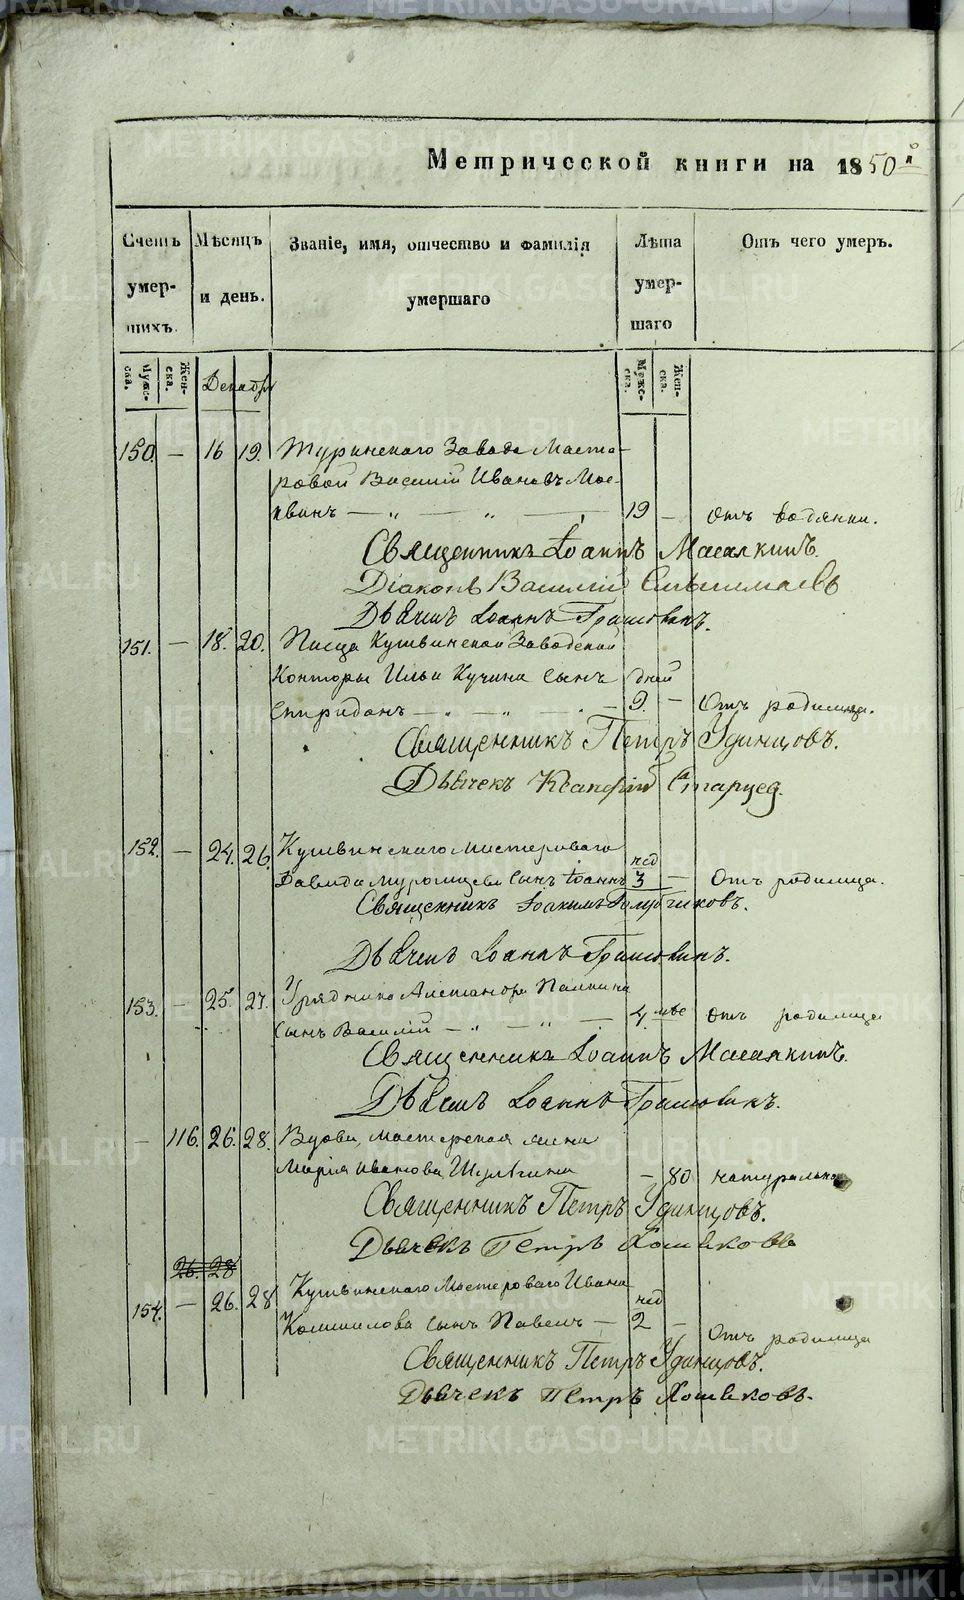 Метрической книги на 1850й
Счетъ умершихъ.
Мѣсяцъ и день.
Званіе, имя, отчество и фамилія умершаго
Лѣта умершаго
Отъ чего умеръ.
Мужеска.
Женска.
Декабрь
Мужеска.
Женска.
150. — 16 19. Туринскаго Завода Масте-
ровой Василий Ивановъ Мос-
квинъ — „ — „ — 19 — отъ водянки.
Священникъ Іоаннъ Масалкинъ.
Діаконъ Василий
Дьячекъ Іоаннъ
151. — 18. 20. Писца Кушвинской Заводской
Конторы Ильи Кучина сынъ дней
Спиридонъ — „ — „ — 9. — Отъ родимца.
Священникъ Петръ Удинцовъ.
Дьячекъ Ксанфій Старцев.
152. — 24. 26. Кушвинскаго Мастероваго нед
Давида Муромцева сынъ Іоаннъ 3 — Отъ родимца.
Священникъ Іоакимъ Голубчиковъ.
Дьячекъ Іоаннъ
153. — 25. 27. Урядника Александра Палкина
сынъ Василій — „ — „ — 4. мѣс отъ родимца
Священникъ Іоаннъ Масалкинъ.
Дьячекъ Іоаннъ
— 116. 26. 28. Вдова, мастерская жена
Марія Иванова Шулгина — 80 натурально
Священникъ Петръ Удинцовъ.
Дьячекъ Петръ Хошековъ
26. 28
154. — 26. 28 Кушвинскаго Мастероваго Ивана нед
сынъ Павелъ — 2 — Отъ родимца
Священникъ Петръ Удинцовъ.
Дьячекъ Петръ Хошековъ.
METRIKI.GASO-URAL.RU